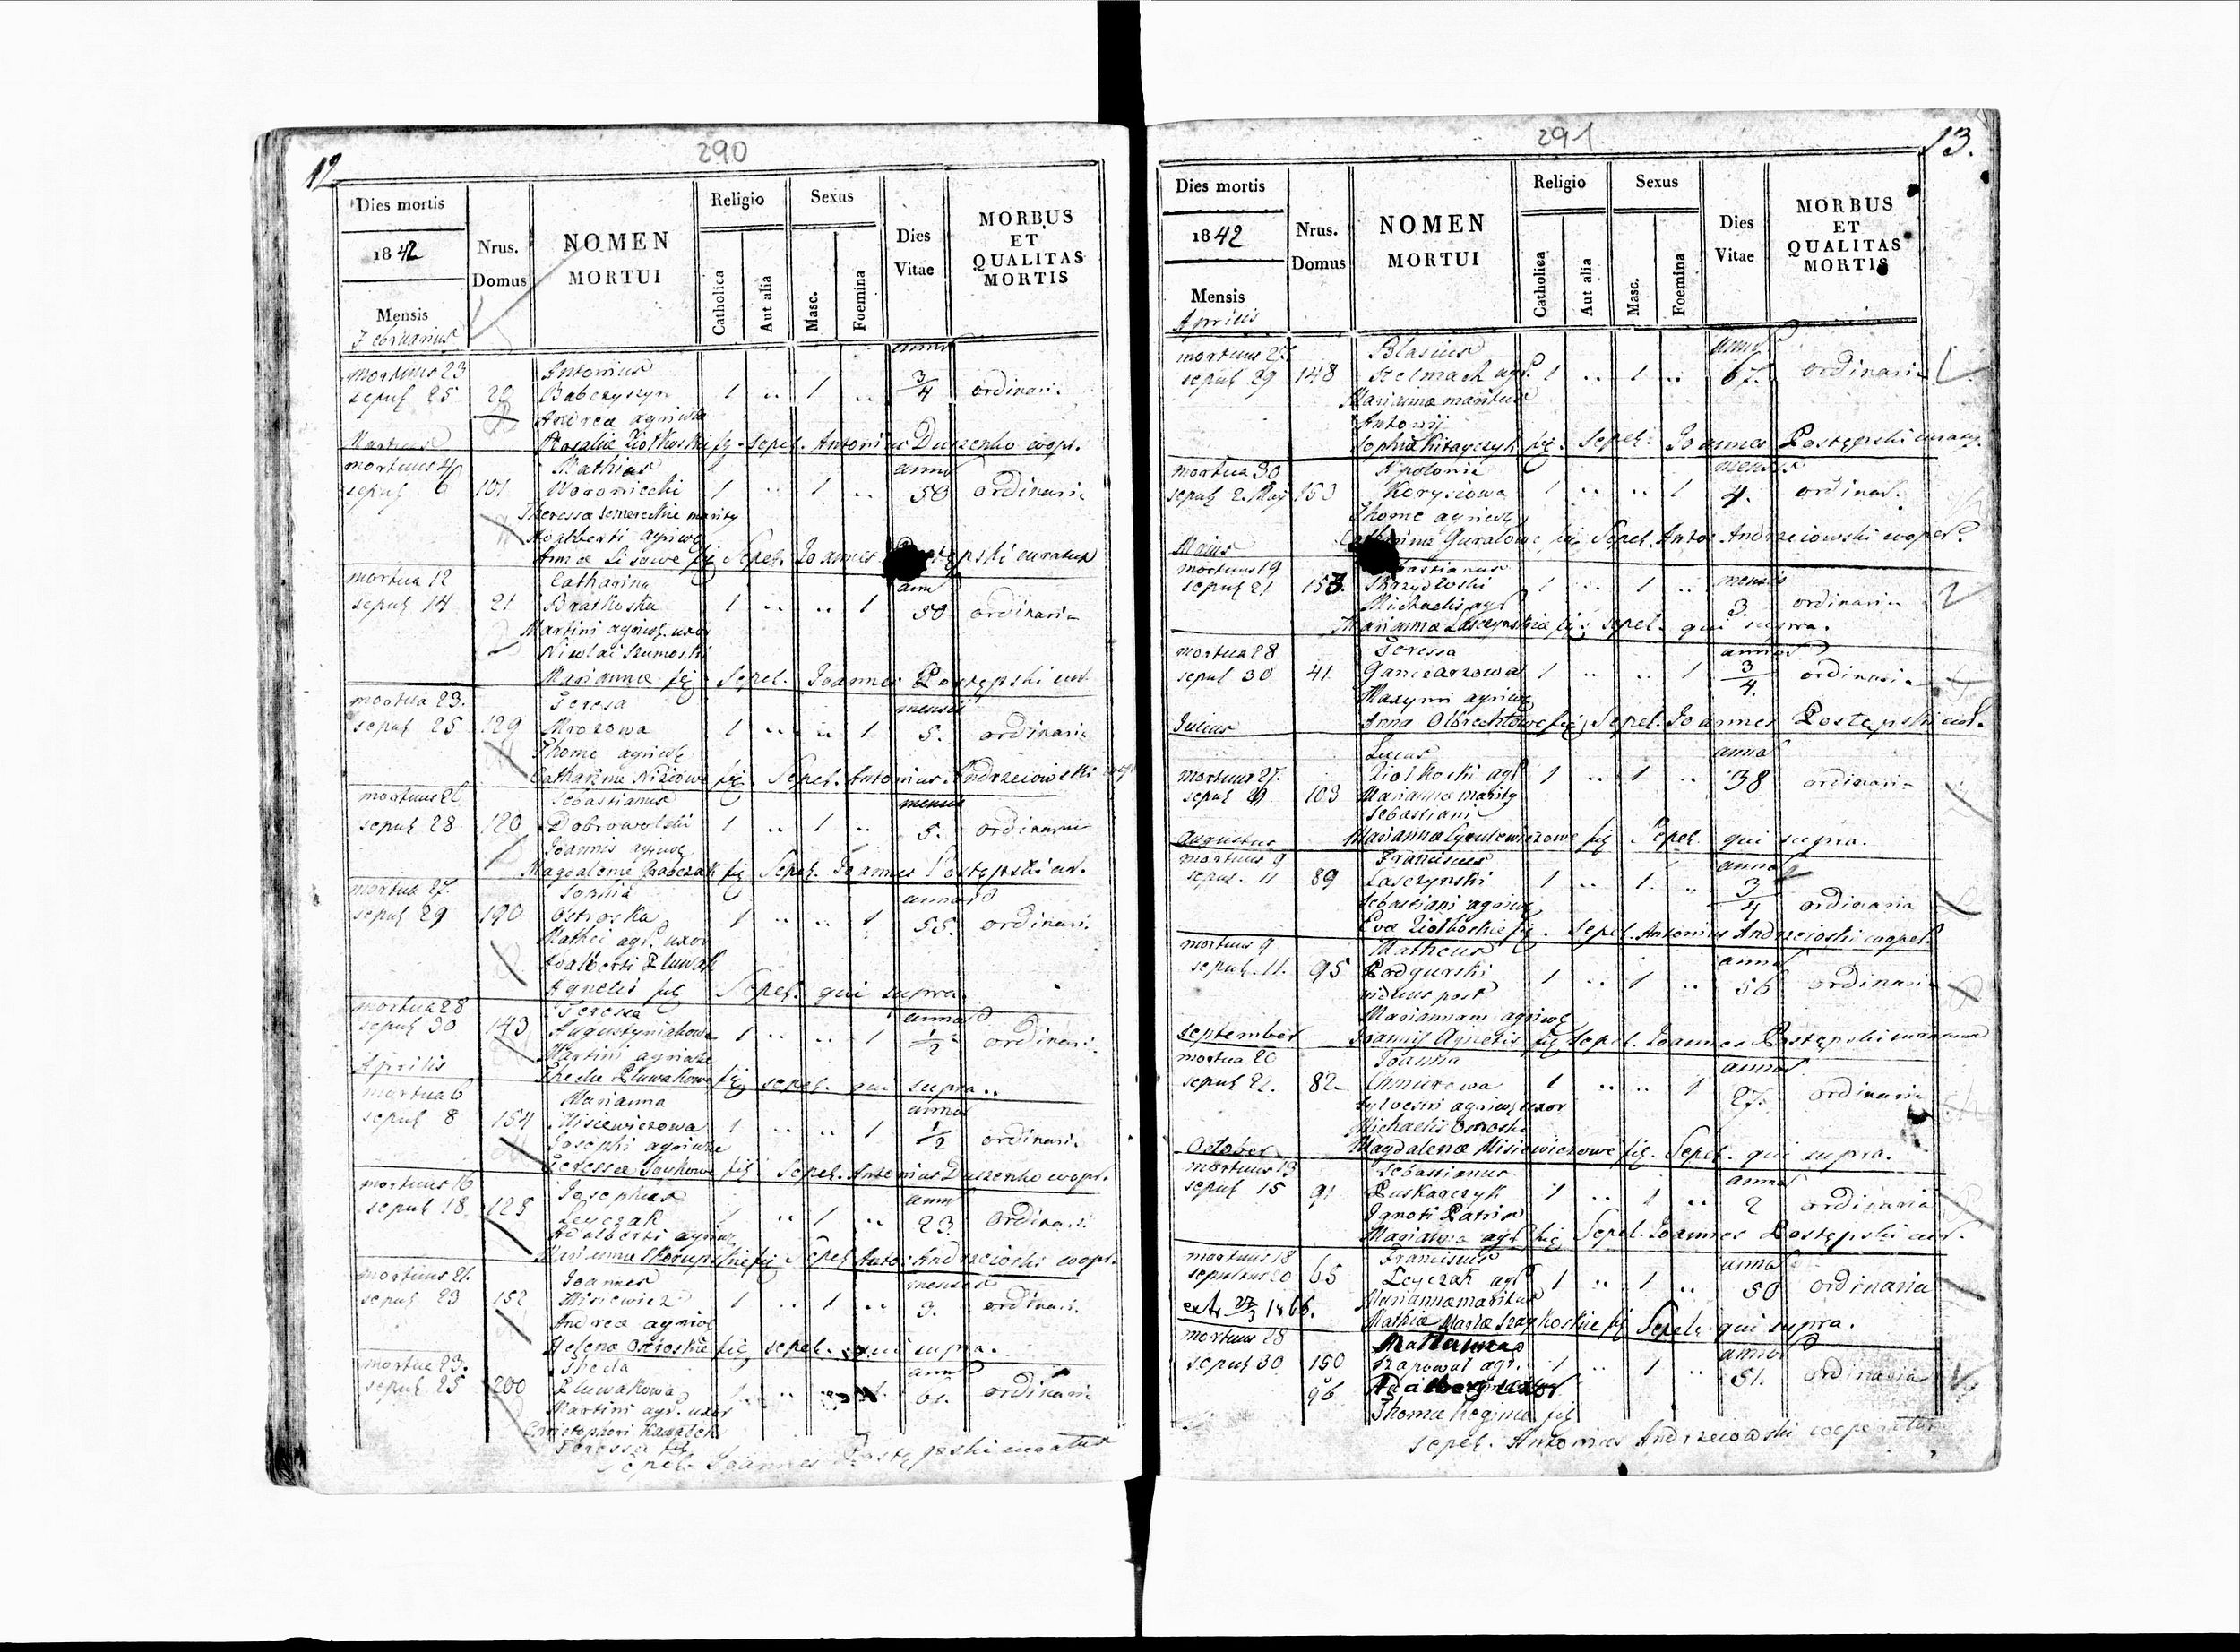 290
12
Dies mortis
1842
Mensis
Februarius
Nrus.
Domus
NOMEN
MORTUI
Religio
Catholica
Aut alia
Sexus
Masc.
Foemina
Dies
Vitae
MORBUS
ET
QUALITAS
MORTIS
mortuus 23 Antonius anni
sepul 25 Babczyszyn 1 .. 1 .. 3/4 ordinari
Andrea agricola
Martius Rosaliae Ziolkoski fil. Sepel. Antonius Duszenko coopr.
mortuus 4 Mathias anno
sepul 6 101 Woroniecki 1 .. 1 .. 50 ordinari
Theressa marity
Adalberti agricol
Annae Lisowe fil Sepel. Joannes curatus
mortua 12 Catharina ann
sepul 14 21 Bratkoska 1 .. .. 1 50 ordinaria
Martini agricol. uxor
Nicolai Szumoski
Mariannae fil Sepel. Joannes Postępski cur.
mortua 23. Teresa mensis
sepul 25 129 Mrozowa 1 .. .. 1 5. ordinari
Thome agricol
Catharinae Niziowe fil. Sepel. Antonius Andrzeiowski
mortuus 26 Sebastianus mensis
sepul 28 120 Dobrowolski 1 .. 1 .. 5. ordinari
Joannis agricol
Magdalenae fil Sepel. Joannes Postępski cur.
mortua 27. Sophia annor
sepul 29 190 Ostroska 1 .. .. 1 55. ordinari.
Mathei agr. uxor
Adalberti Pluwak
Agnetis fil Sepel. qui supra.
mortua 28 Teressa annor
sepul 30 143 Augustyniakowa 1 .. .. 1 1/2 ordinari.
Martini agricolae
Aprilis Theclae Pluwakowe fil sepel. qui supra..
mortua 6 Marianna annor
sepul 8 154 Misiewiczowa 1 .. .. 1 1/2 ordinari.
Josephi agricolae
Teressae fil Sepel. Antonius Duszenko coopr.
mortuus 16 Josephus ann
sepul 18. 125 Leyczak 1 .. 1 .. 23. ordinari
Adalberti agricol
Mariannae Skorupskie fil Sepel Anto: Andrzeioski coopr.
mortuus 21. Joannes mensis
sepul 23 152 Misiewicz 1 .. 1 .. 3. ordinari.
Andrea agricol
Helenae Ostroskie fil sepel. qui supra.
mortua 23. Thecla ann
sepul 25 200 Pluwakowa 1 .. 61. ordinari
Martini agr. uxor
Christophori
Teressa fil
Sepel. Joannes Postępski curatus
291
13.
Dies mortis
1842
Mensis
Aprilis
Nrus.
Domus
NOMEN
MORTUI
Religio
Catholica
Aut alia
Sexus
Masc.
Foemina
Dies
Vitae
MORBUS
ET
QUALITAS
MORTIS
mortuus 27 Blasius anni
sepul 29 148 Stelmach agr. 1 .. 1 .. 67. ordinaria
Mariannae maritus
Antonij
Sophia Kitayczyk fil. Sepel. Joannes Postępski curatus.
mortua 30 Apolonia mensis
sepul 2. Maj 153 Korysiowa 1 .. .. 1 4. ordinar.
Thome agricol
Maius Guralowe fil Sepel. Anto: Andrzeiowski cooper
mortuus 19 Sebastianus mensis
sepul 21 153. Skrzydloski 1 .. 1 .. 3. ordinaria
Michaelis agr
Mariannae Laszczynskie fil; sepel. qui supra.
mortua 28 Teressa annor
sepul 30 41. Gancarzowa 1 .. .. 1 3/4. ordinaria
Maxymi agricol
Julius Anna Olbrechtowe fil; Sepel. Joannes Postępski cur.
Lucas annor
mortuus 27. Ziolkoski agr 1 .. 1 .. 38 ordinaria
sepul 29 103 Mariannae marity
Sebastiani
Augustus Mariannae fil Sepel. qui supra.
mortuus 9 Franciscus annor
sepul. 11 89 Lasczynski 1 .. 1. .. 3/4 ordinaria
Sebastiani agricol
Evae Ziolkoskie fil. Sepel. Antonius Andrzeioski cooper.
mortuus 9 Matheus annor
sepul. 11. 95 Podgurski 1 .. 1 .. 56 ordinari
viduus post
Mariannam agricol
September Joannis Agnetis fil, Sepel. Joannes Postępski curatus
mortua 20 Joanna annor
sepul 22. 82. Chmurowa 1 .. .. 1 27. ordinari
Sylvestri agricol uxor
Michaelis Ostroski
October Magdalenae Misiewiczowe fil. Sepel. qui supra.
mortuus 13 Sebastianus annor
sepul 15 91 Puskarczyk 1 .. 1 .. 2 ordinaria
Ignoti Patris
Marianna agr. fil, Sepel. Joannes Postępski cur.
mortuus 18 Franciscus annor
sepultus 20 65 Leyczak agr 1 .. 1 .. 50 ordinaria
Mariannae maritus
extr 27/3 1866. Mathiae Mariae fil Sepel. qui supra.
mortuus 28 annor
sepul 30 150 Szapowal agr. 1 .. 1 .. 51. ordinaria
96
Thomae Reginae fil
sepel. Antonius Andrzeiowski cooperator